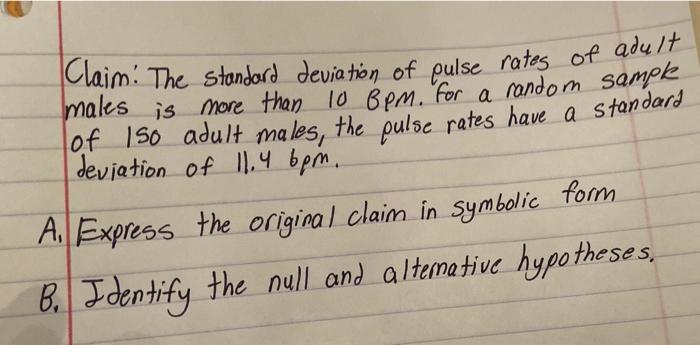 Claim: The standard deviation of pulse rates of adult
males is more than 10 BPM. For a random sample
of 150 adult males, the pulse rates have a standard
deviation of 11.4 bpm.
A. Express the original claim in symbolic form
B. Identify the null and alternative hypotheses.